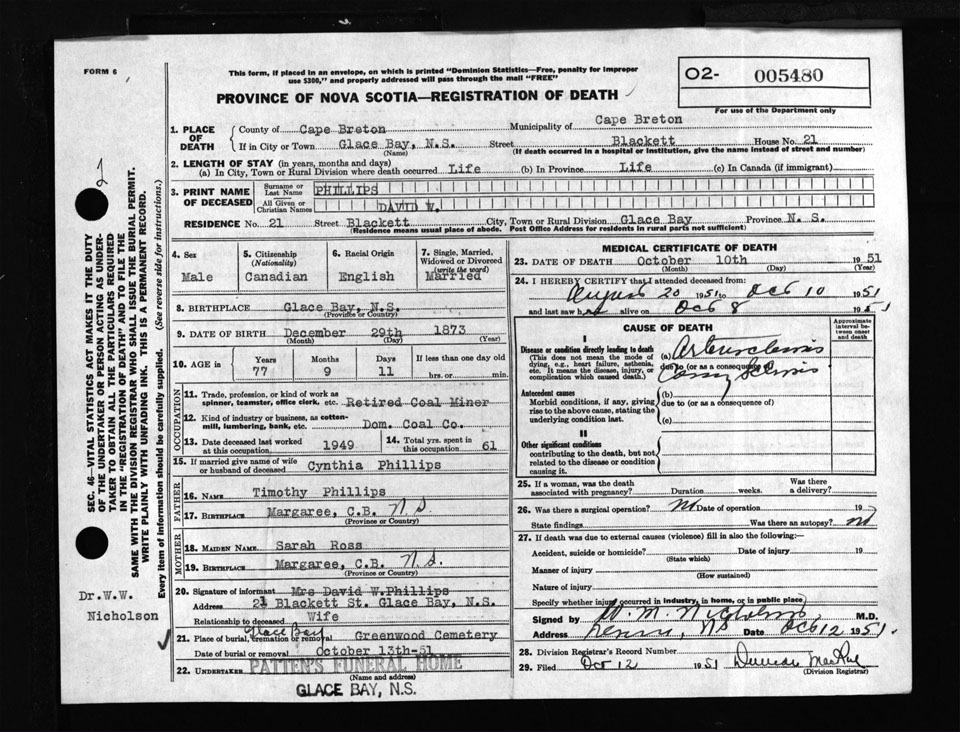 FORM 6
This form, if placed in an envelope, on which is printed "Dominion Statistics—Free, penalty for improper
use $300," and properly addressed will pass through the mail "FREE"
PROVINCE OF NOVA SCOTIA—REGISTRATION OF DEATH
02- 005480
For use of the Department only
1. PLACE OF DEATH
County of Cape Breton Municipality of Cape Breton
If in City or Town Glace Bay, N.S. Street Blackett House No. 21
(Name) (If death occurred in a hospital or institution, give the name instead of street and number)
2. LENGTH OF STAY (in years, months and days)
(a) In City, Town or Rural Division where death occurred Life (b) In Province Life (c) In Canada (if immigrant)
3. PRINT NAME OF DECEASED
Surname or Last Name PHILLIPS
All Given or Christian Names DAVID W.
RESIDENCE No. 21 Street Blackett City, Town or Rural Division Glace Bay Province N. S.
(Residence means usual place of abode. Post Office Address for residents in rural parts not sufficient)
4. Sex
Male
5. Citizenship (Nationality)
Canadian
6. Racial Origin
English
7. Single, Married, Widowed or Divorced (write the word)
Married
8. BIRTHPLACE Glace Bay, N.S.
(Province or Country)
9. DATE OF BIRTH December 29th 1873
(Month) (Day) (Year)
10. AGE in Years Months Days If less than one day old
77 9 11 hrs. or min.
OCCUPATION
11. Trade, profession, or kind of work as
spinner, teamster, office clerk, etc. Retired Coal Miner
12. Kind of industry or business, as cotton-
mill, lumbering, bank, etc. Dom. Coal Co.
13. Date deceased last worked at this occupation. 1949
14. Total yrs. spent in this occupation 61
15. If married give name of wife or husband of deceased Cynthia Phillips
FATHER
16. NAME Timothy Phillips
17. BIRTHPLACE Margaree, C.B. N S
(Province or Country)
MOTHER
18. MAIDEN NAME Sarah Ross
19. BIRTHPLACE Margaree, C.B. N.S.
(Province or Country)
20. Signature of informant Mrs David W.Phillips
Address 21 Blackett St. Glace Bay, N.S.
Relationship to deceased Wife
21. Place of burial, cremation or removal Glace Bay Greenwood Cemetery
Date of burial or removal October 13th-51
22. UNDERTAKER PATTEN'S FUNERAL HOME
(Name and address)
GLACE BAY, N.S.
MEDICAL CERTIFICATE OF DEATH
23. DATE OF DEATH October 10th 1951
(Month) (Day) (Year)
24. I HEREBY CERTIFY that I attended deceased from:
August 20 1951 to Oct 10 1951
and last saw h alive on Oct 8 1951
CAUSE OF DEATH
Approximate interval between onset and death
I
Disease or condition directly leading to death
(This does not mean the mode of
dying, e.g., heart failure, asthenia,
etc. It means the disease, injury, or
complication which caused death.)
(a)
due to (or as a consequence of)
Antecedent causes
Morbid conditions, if any, giving
rise to the above cause, stating the
underlying condition last.
(b)
due to (or as a consequence of)
(c)
II
Other significant conditions
contributing to the death, but not
related to the disease or condition
causing it.
25. If a woman, was the death associated with pregnancy? Duration weeks. Was there a delivery?
26. Was there a surgical operation? No Date of operation 19
State findings Was there an autopsy? No
27. If death was due to external causes (violence) fill in also the following:—
Accident, suicide or homicide? Date of injury 19
(State which)
Manner of injury
(How sustained)
Nature of injury
Specify whether injury occurred in industry, in home, or in public place
Signed by W. M. Nicholson M.D.
Address NS Date Oct 12 1951
28. Division Registrar's Record Number
29. Filed Oct 12 1951 Duncan MacRae
(Division Registrar)
SEC. 46—VITAL STATISTICS ACT MAKES IT THE DUTY
OF THE UNDERTAKER OR PERSON ACTING AS UNDER-
TAKER TO OBTAIN ALL THE PARTICULARS REQUIRED
IN THE "REGISTRATION OF DEATH" AND TO FILE THE
SAME WITH THE DIVISION REGISTRAR WHO SHALL ISSUE THE BURIAL PERMIT.
WRITE PLAINLY WITH UNFADING INK. THIS IS A PERMANENT RECORD.
Every item of information should be carefully supplied. (See reverse side for instructions.)
Dr.W.W.
Nicholson